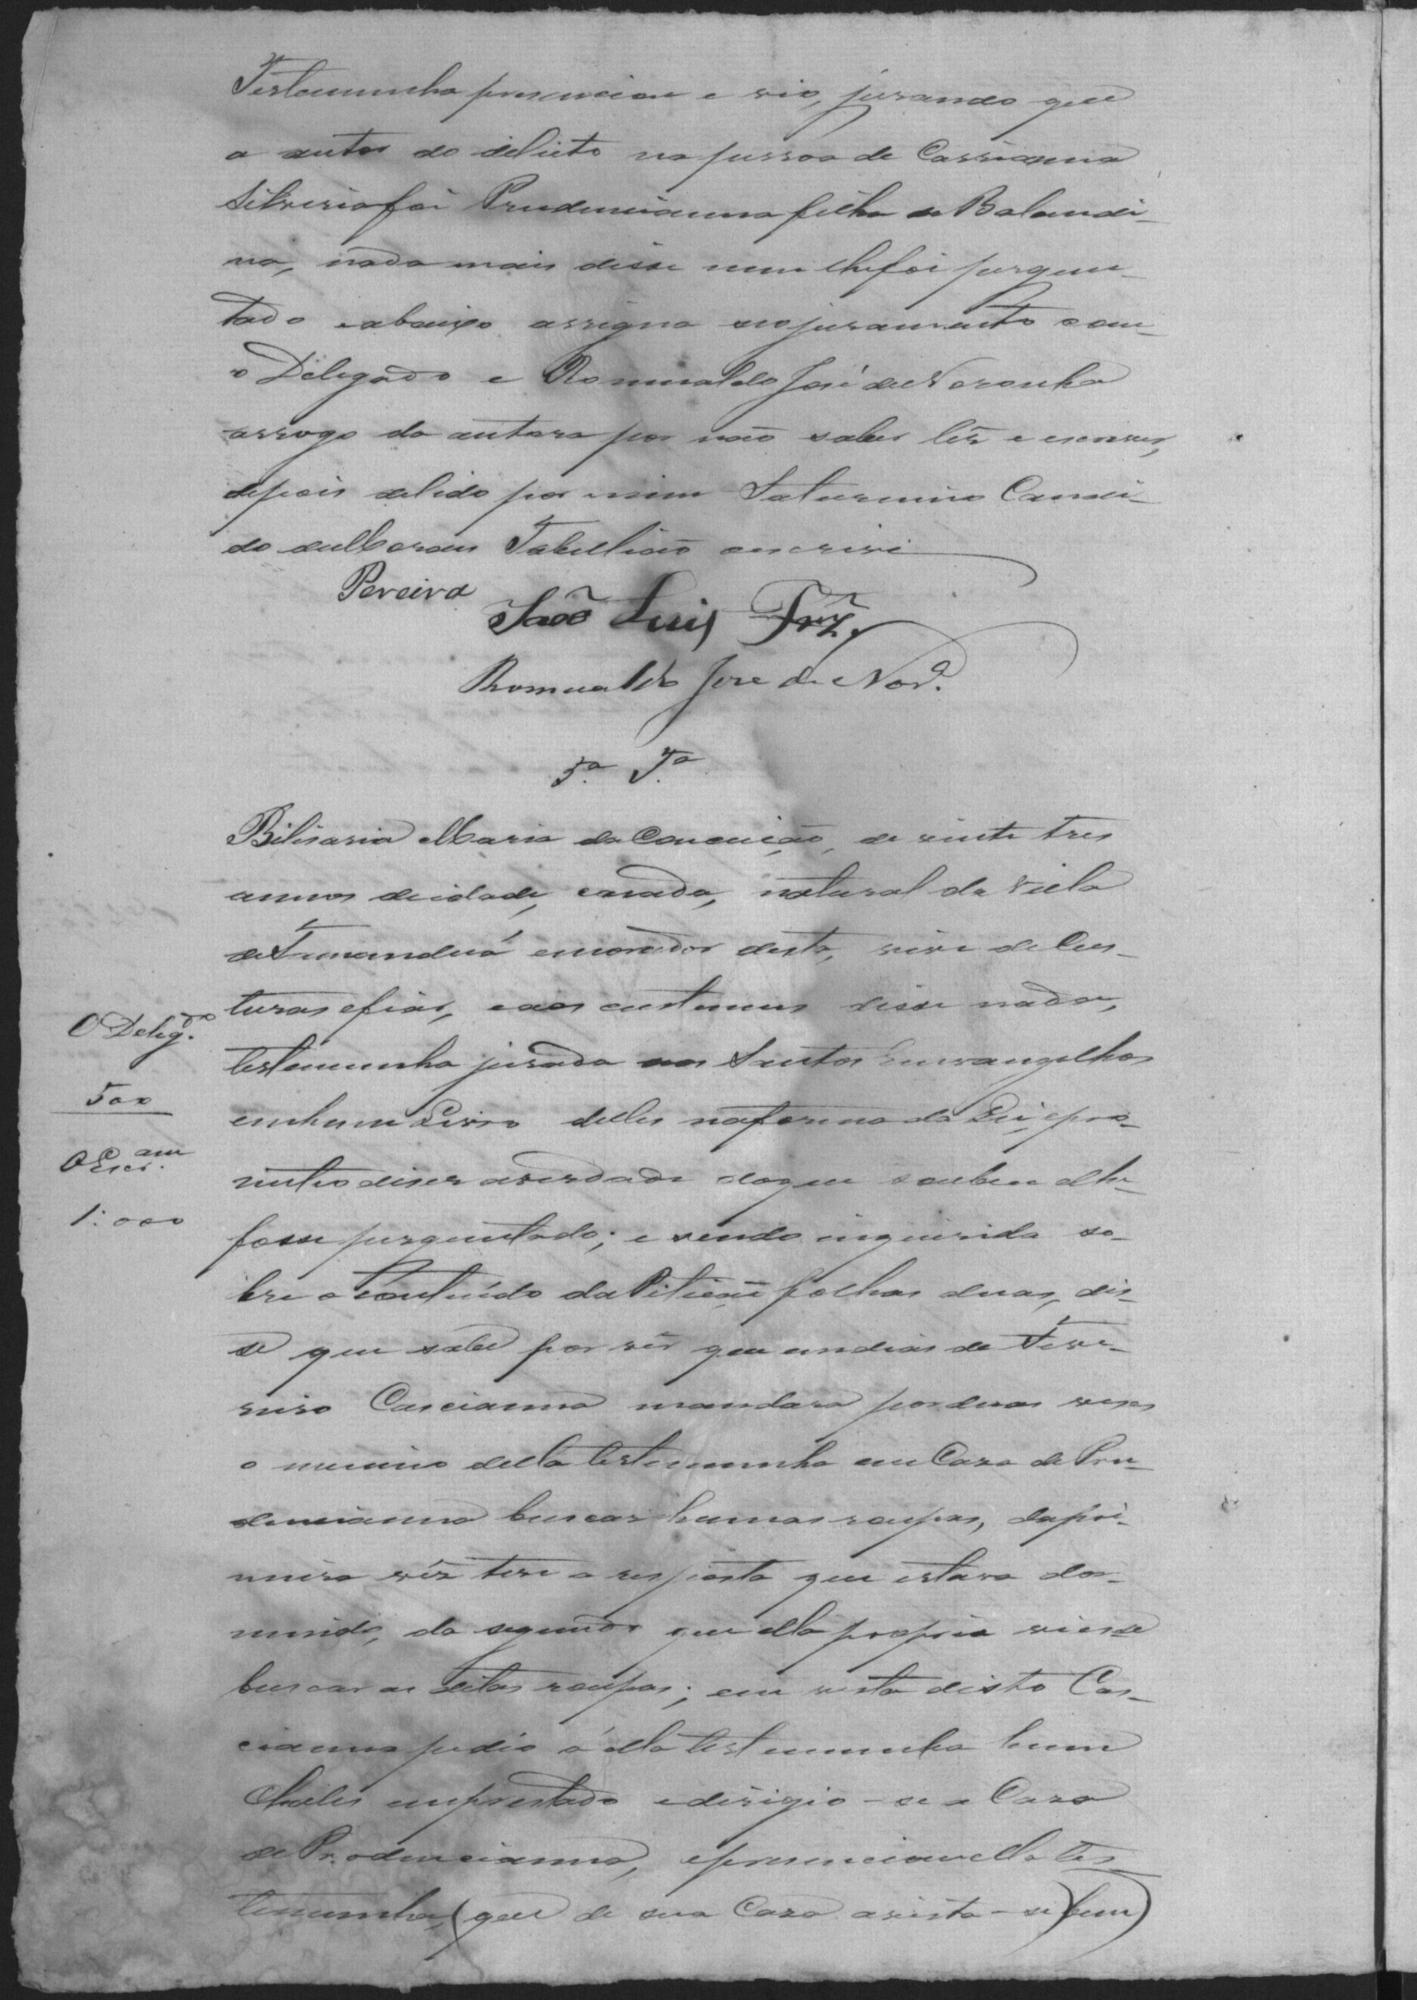 Testemunha presenciou e vio, jurando que
a autor do delicto na pessoa de Cassianna
Silveria foi Prudencianna filha de Balandi-
na, nada mais disse nem lhe foi pergun-
tado e abaixo assigna seo juramento com
o Delegado e Romualdo José de Noronha
arrogo da autora por não saber lêr e escrever,
depois de lido por mim Saturnino Candi-
do de Moraes Tabellião o escrivi
Pereira
João Luis Frz.
Romualdo Jose de Nor.ª
5.ª T.ª
Bilisaria Maria da Conceição, de vinte tres
annos de idade, casada, natural da Villa
de Tamanduá e morador desta, vive de Cus-
turas e fiar, e aos custumes disse nada,
testemunha jurada aos Santos Envangelhos
em hum Livro delles na forma da Lei, e pro-
mitteo diser a verdade do que soubece e lhe
fosse perguntado; e sendo inquirida so-
bre o contuído da Pitição folhas duas, dis-
se que sabe por vêr que em dias de Feve-
reiro Cascianna mandara por duas veses
o menino della testemunha em Caza de Pru-
dencianna buscar humas roupas, da pri-
meira vêz teve a resposta que estava dor-
mindo, da segunda que ella propria viesse
buscar as ditas roupas; em vista disto Cas-
cianna pedio á ella testemunha hum
Chales emprestado e dirigio-se a Caza
de Prodencianna, e presenciou ella tes-
temunha, (que de sua Caza avista-se bem)
O Deleg.do
500
O Escr.am
1:000